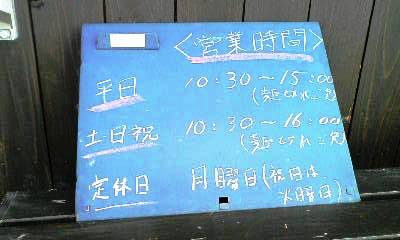 <営業時間>
平日 10:30~15:00
(麺切れご免)
土日祝 10:30~16:00
(麺切れご免)
定休日 月曜日(祝日は
火曜日)